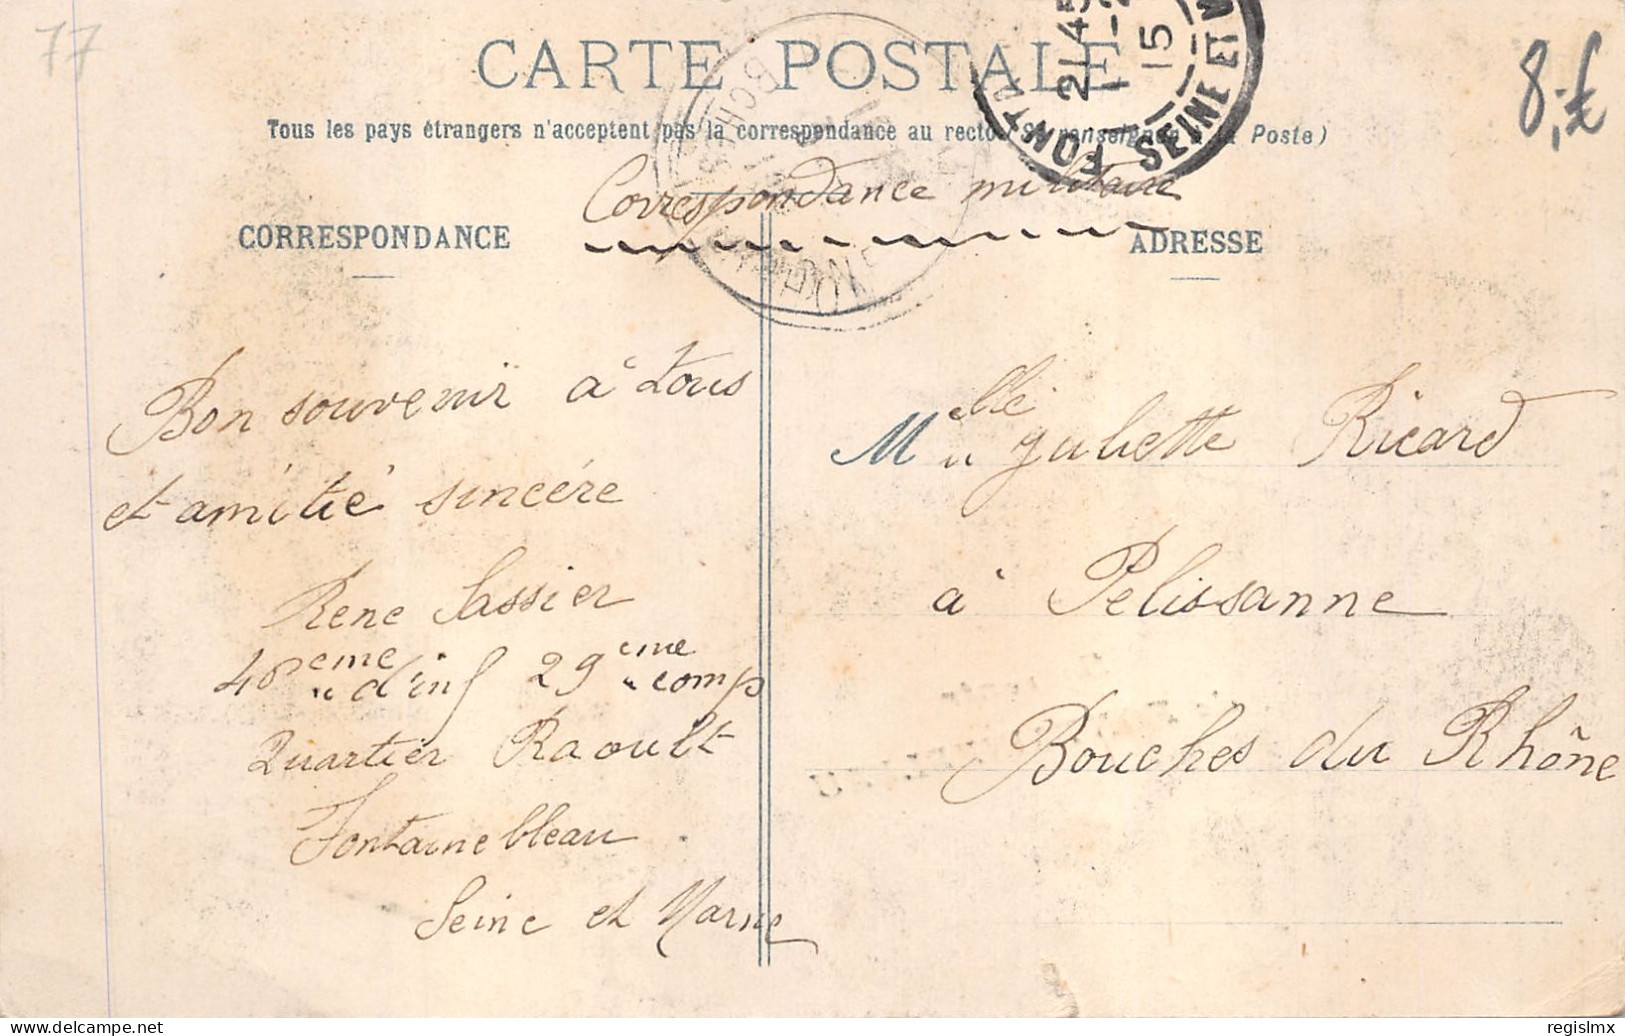 77
CARTE POSTALE
8,-€
21 45
1 - 2
15
SEINE ET M
FONT
Tous les pays étrangers n'acceptent pas la correspondance au recto (Se renseigner à la Poste)
Correspondance militaire
CORRESPONDANCE
ADRESSE
Bon souvenir à tous
et amitié sincére
Rene Sassier
46eme d'inf 29eme comp
Quartier Raoult
Fontainebleau
Seine et Marne
Melle Juliette Ricard
à Pelissanne
Bouches du Rhône
www.delcampe.net
regislmx